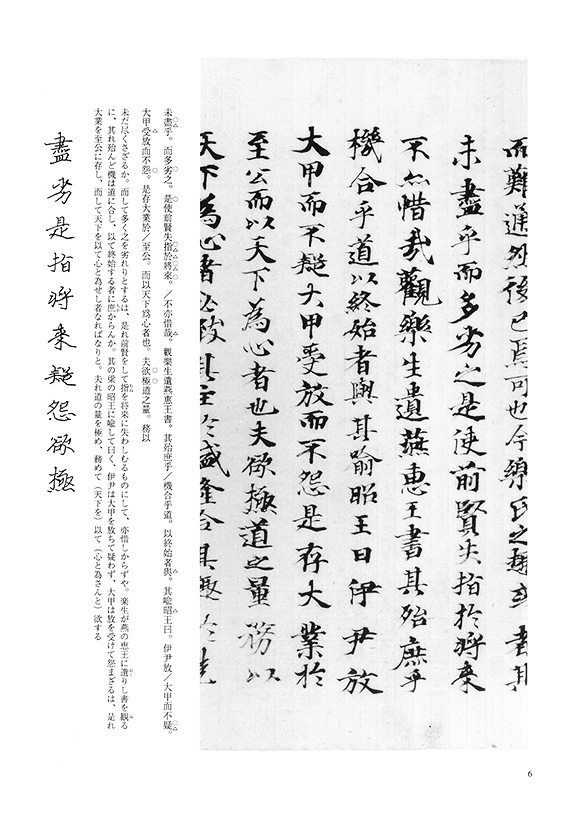 而難通然後已焉可也今樂氏之趣或者其
未盡乎而多劣之是使前賢失指於將來
不亦惜哉觀樂生遺燕惠王書其殆庶乎
機合乎道以終始者與其喻昭王曰伊尹放
大甲而不疑大甲受放而不怨是存大業於
至公而以天下為心者也夫欲極道之量務以
天下為心者必致其主於盛隆合其趣於先
未盡乎。而多劣之。是使前賢失指於將來。／不亦惜哉。觀樂生遺燕惠王書。其殆庶乎／機合乎道。以終始者與。其喩昭王曰。伊尹放／大甲而不疑。
大甲受放而不怨。是存大業於／至公。而以天下爲心者也。夫欲極道之量。務以
未だ尽くさざるか。而して多く之を劣れりとするは、是れ前賢をして指を将来に失わしむるものにして、亦惜しからずや。楽生が燕の恵王に遺りし書を観る
に、其れ殆んど機は道に合し、以て終始する者に庶からんか。其の梁の昭王に喩して曰く、伊尹は大甲を放ちて疑わず、大甲は放を受けて怨まざるは、是れ
大業を至公に存し、而して天下を以て心と為せし者なればなりと。夫れ道の量を極め、務めて（天下を）以て（心と為さんと）欲する
盡劣是指將來疑怨欲極
6